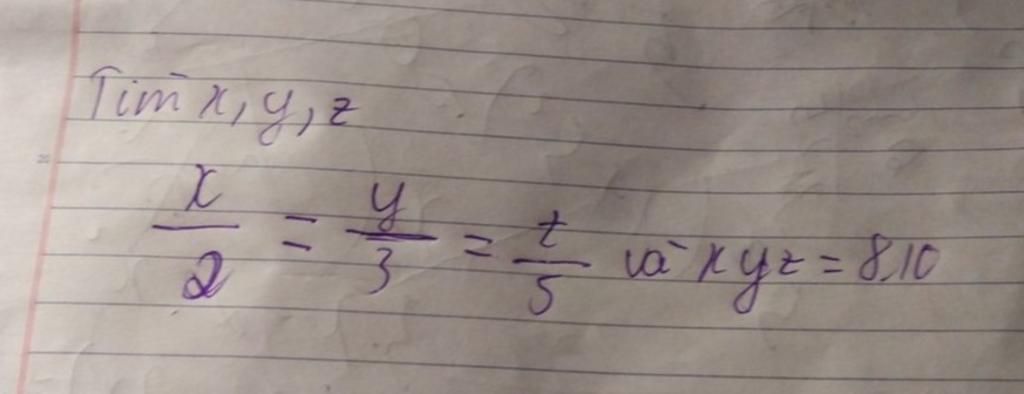 Tìm x, y, z
x/2 = y/3 = z/5 và xyz = 810